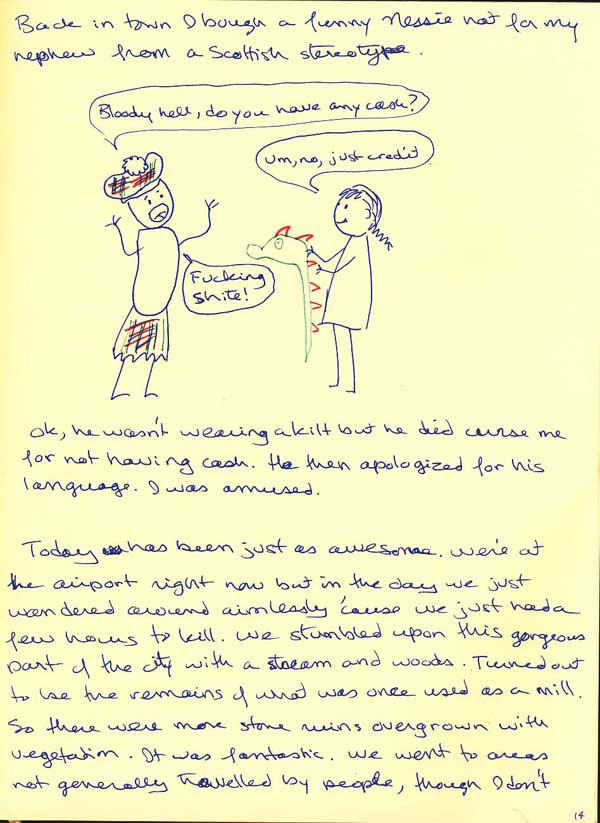 Back in town I bough a funny Nessie hat for my
nephew from a Scottish stereotype.
Bloody hell, do you have any cash?
Um, no, just credit
Fucking
shite!
Ok, he wasn't wearing a kilt but he did curse me
for not having cash. He then apologized for his
language. I was amused.
Today has been just as awesome. We're at
the airport right now but in the day we just
wandered around aimlessly 'cause we just had a
few hours to kill. We stumbled upon this gorgeous
part of the city with a stream and woods. Turned out
to be the remains of what was once used as a mill.
So there were more stone ruins overgrown with
vegetation. It was fantastic. We went to areas
not generally travelled by people, though I don't
14